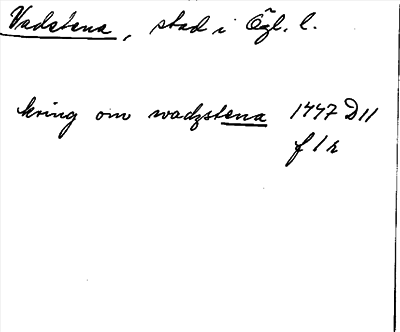 Vadstena, stad i Ögl. l.
kring om wadzstena 1447 D11
f 1 r